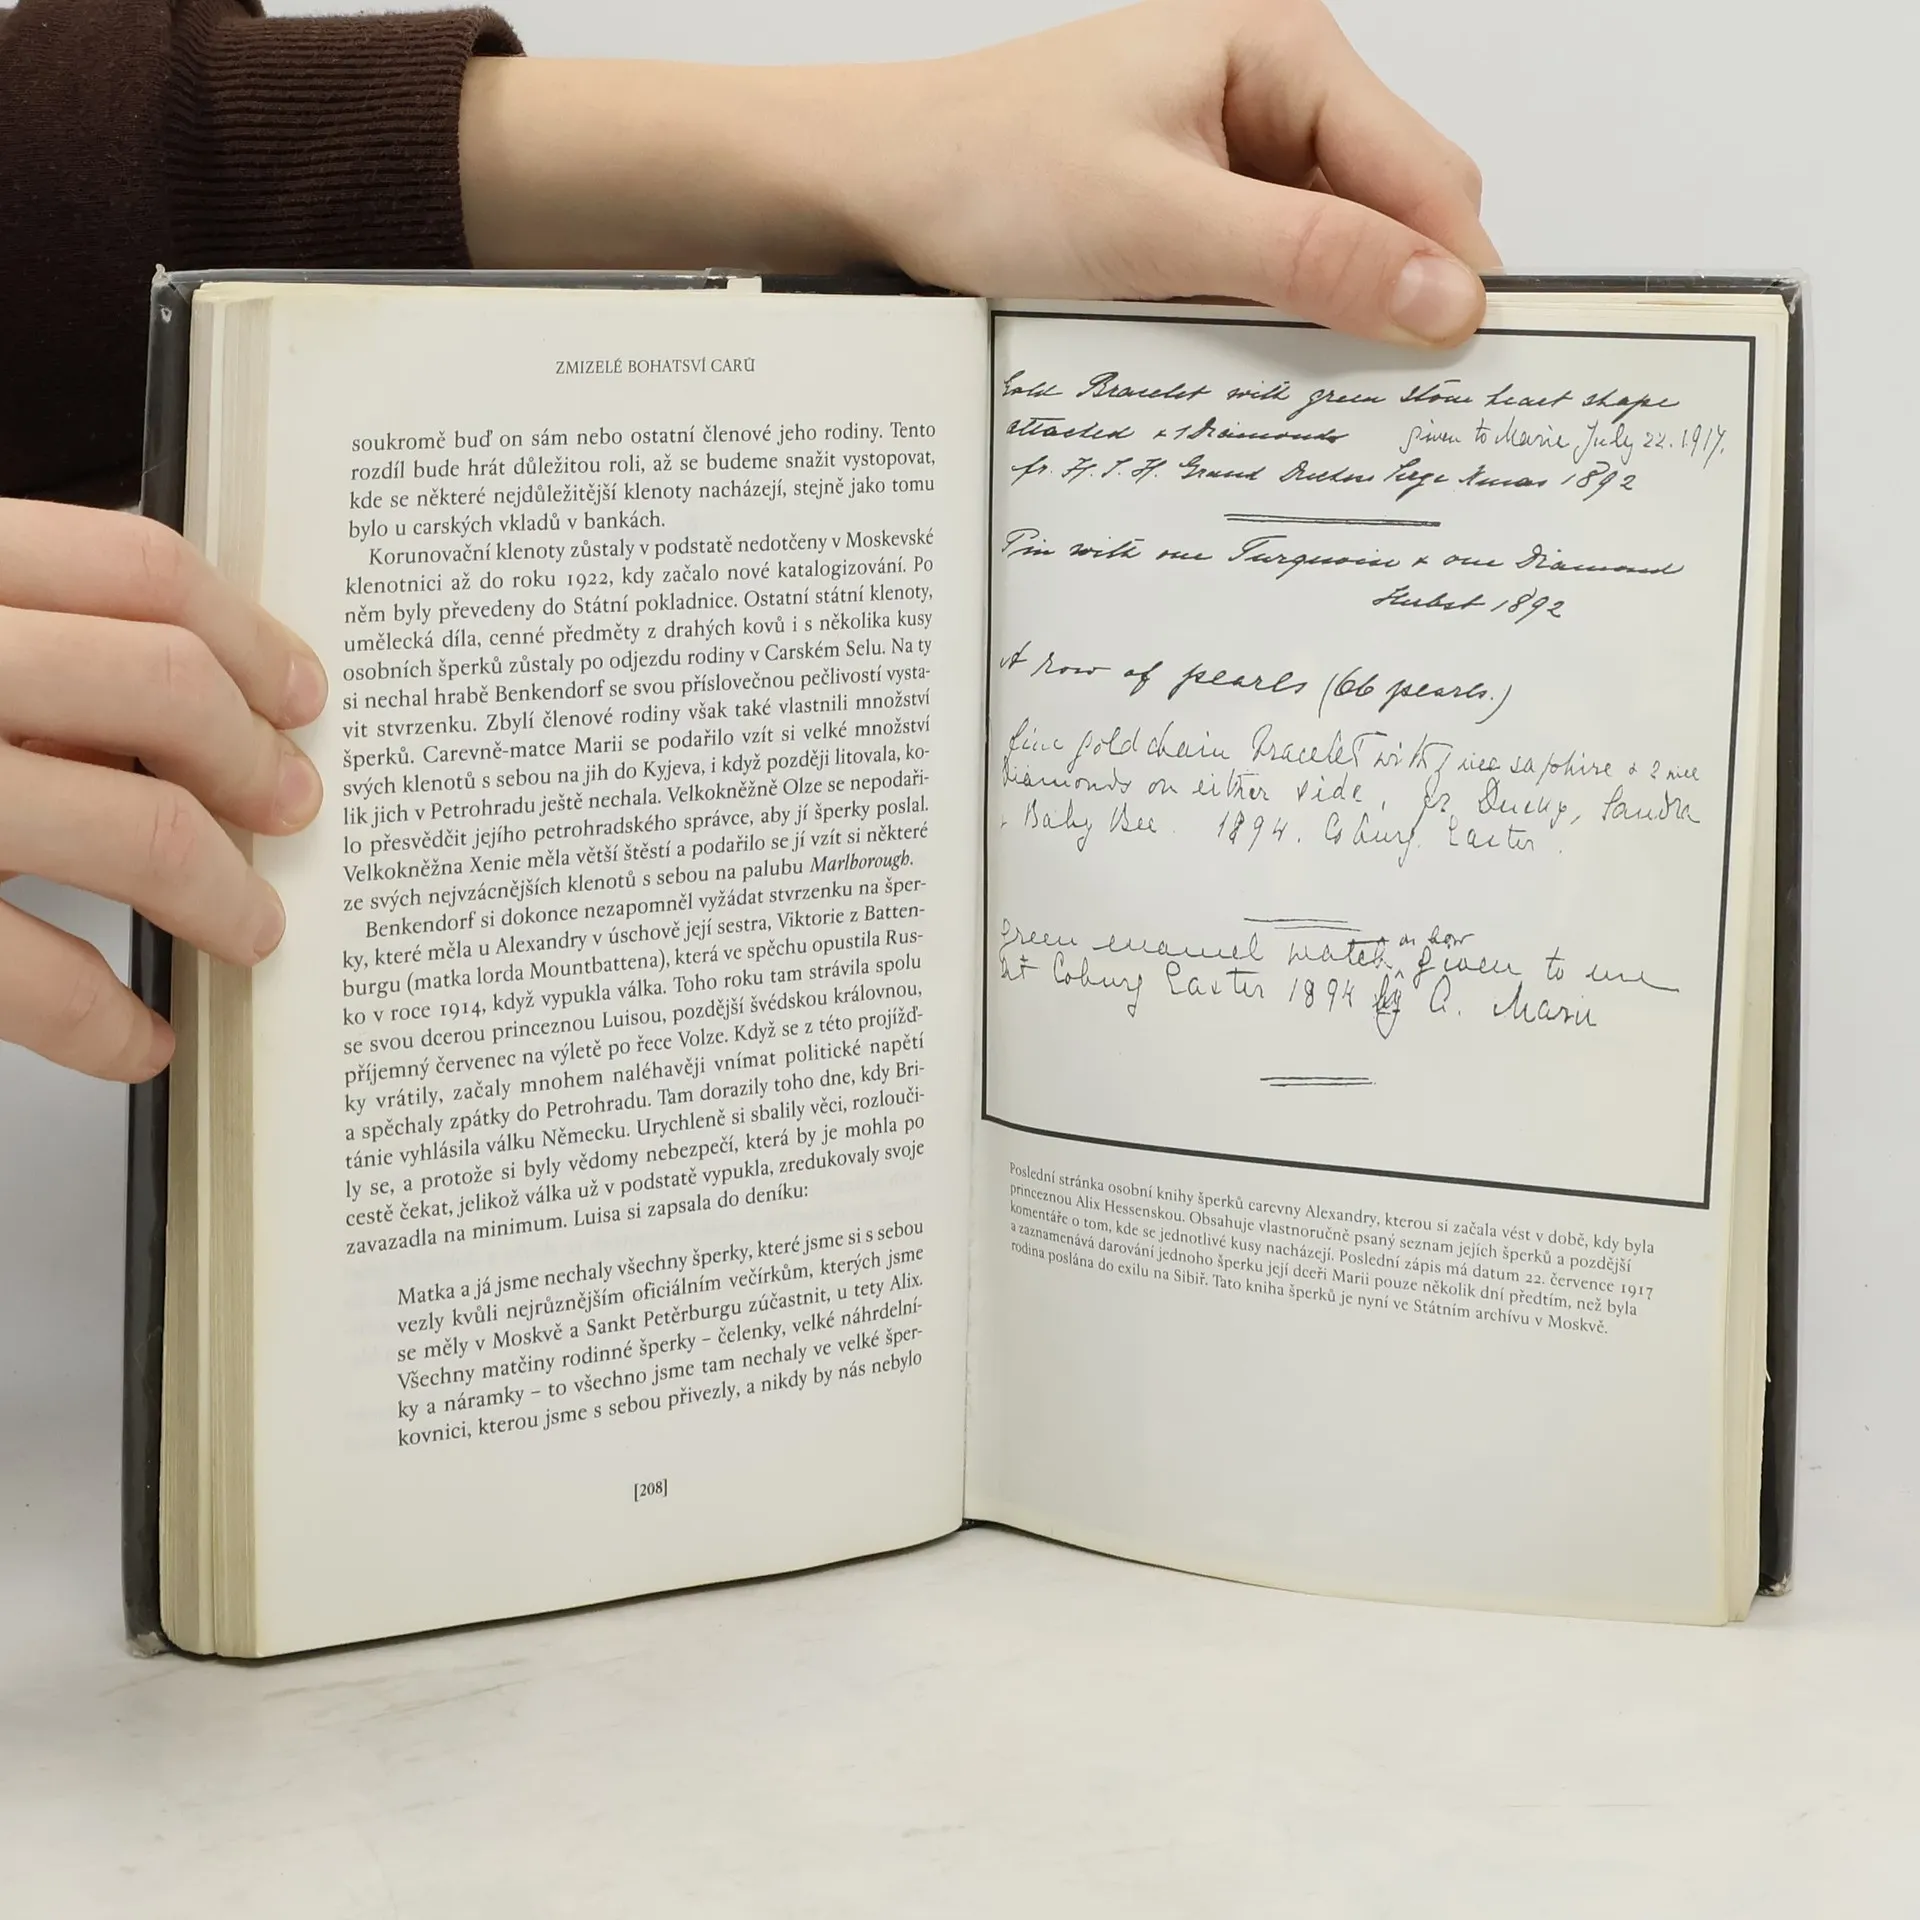 ZMIZELÉ BOHATSVÍ CARŮ
soukromě buď on sám nebo ostatní členové jeho rodiny. Tento
rozdíl bude hrát důležitou roli, až se budeme snažit vystopovat,
kde se některé nejdůležitější klenoty nacházejí, stejně jako tomu
bylo u carských vkladů v bankách.
Korunovační klenoty zůstaly v podstatě nedotčeny v Moskevské
klenotnici až do roku 1922, kdy začalo nové katalogizování. Po
něm byly převedeny do Státní pokladnice. Ostatní státní klenoty,
umělecká díla, cenné předměty z drahých kovů i s několika kusy
osobních šperků zůstaly po odjezdu rodiny v Carském Selu. Na ty
si nechal hrabě Benkendorf se svou příslovečnou pečlivostí vysta-
vit stvrzenku. Zbylí členové rodiny však také vlastnili množství
šperků. Carevně-matce Marii se podařilo vzít si velké množství
svých klenotů s sebou na jih do Kyjeva, i když později litovala, ko-
lik jich v Petrohradu ještě nechala. Velkokněžně Olze se nepodaři-
lo přesvědčit jejího petrohradského správce, aby jí šperky poslal.
Velkokněžna Xenie měla větší štěstí a podařilo se jí vzít si některé
ze svých nejvzácnějších klenotů s sebou na palubu Marlborough.
Benkendorf si dokonce nezapomněl vyžádat stvrzenku na šper-
ky, které měla u Alexandry v úschově její sestra, Viktorie z Batten-
burgu (matka lorda Mountbattena), která ve spěchu opustila Rus-
ko v roce 1914, když vypukla válka. Toho roku tam strávila spolu
se svou dcerou princeznou Luisou, pozdější švédskou královnou,
příjemný červenec na výletě po řece Volze. Když se z této projížď-
ky vrátily, začaly mnohem naléhavěji vnímat politické napětí
a spěchaly zpátky do Petrohradu. Tam dorazily toho dne, kdy Bri-
tánie vyhlásila válku Německu. Urychleně si sbalily věci, rozlouči-
ly se, a protože si byly vědomy nebezpečí, která by je mohla po
cestě čekat, jelikož válka už v podstatě vypukla, zredukovaly svoje
zavazadla na minimum. Luisa si zapsala do deníku:
Matka a já jsme nechaly všechny šperky, které jsme si s sebou
vezly kvůli nejrůznějším oficiálním večírkům, kterých jsme
se měly v Moskvě a Sankt Petěrburgu zúčastnit, u tety Alix.
Všechny matčiny rodinné šperky – čelenky, velké náhrdelní-
ky a náramky – to všechno jsme tam nechaly ve velké šper-
kovnici, kterou jsme s sebou přivezly, a nikdy by nás nebylo
[208]
Gold Bracelet with green stone heart shape
attached & 1 Diamonds given to Marie July 22. 1917.
fr. H. I. H. Grand Duchess Serge Xmas 1892
Pin with one Turquoise & one Diamond
Herbst 1892
A row of pearls (66 pearls.)
fine gold chain bracelet with nice saphire & 2 nice
Diamonds on either side, fr. Ducky, Sandra
& Baby Bee. 1894. Coburg. Easter.
green enamel watch on bow given to me
at Coburg Easter 1894 by A. Marie
Poslední stránka osobní knihy šperků carevny Alexandry, kterou si začala vést v době, kdy byla
princeznou Alix Hessenskou. Obsahuje vlastnoručně psaný seznam jejích šperků a pozdější
komentáře o tom, kde se jednotlivé kusy nacházejí. Poslední zápis má datum 22. července 1917
a zaznamenává darování jednoho šperku její dceři Marii pouze několik dní předtím, než byla
rodina poslána do exilu na Sibiř. Tato kniha šperků je nyní ve Státním archívu v Moskvě.